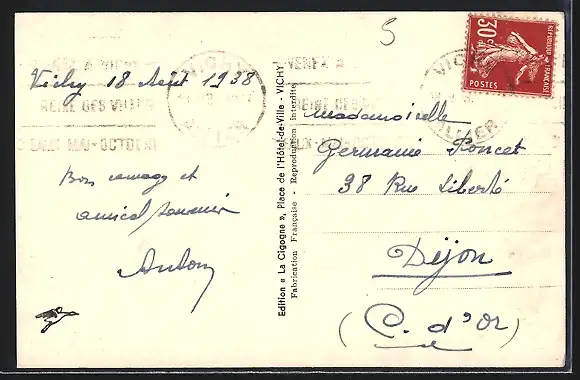 5
Vichy 18 Août 1938
Bon courage et
amical souvenir
Antony
Edition « La Cigogne », Place de l'Hôtel-de-Ville - VICHY
Fabrication Française - Reproduction interdite
30c
REPUBLIQUE FRANÇAISE
POSTES
VICHY
ALLIER
REINE DES VILLES
MAI-OCTOBRE
VENEZ A
REINE DES
Mademoiselle
Germaine Poncet
38 Rue Liberté
Dijon
(C. d'Or)